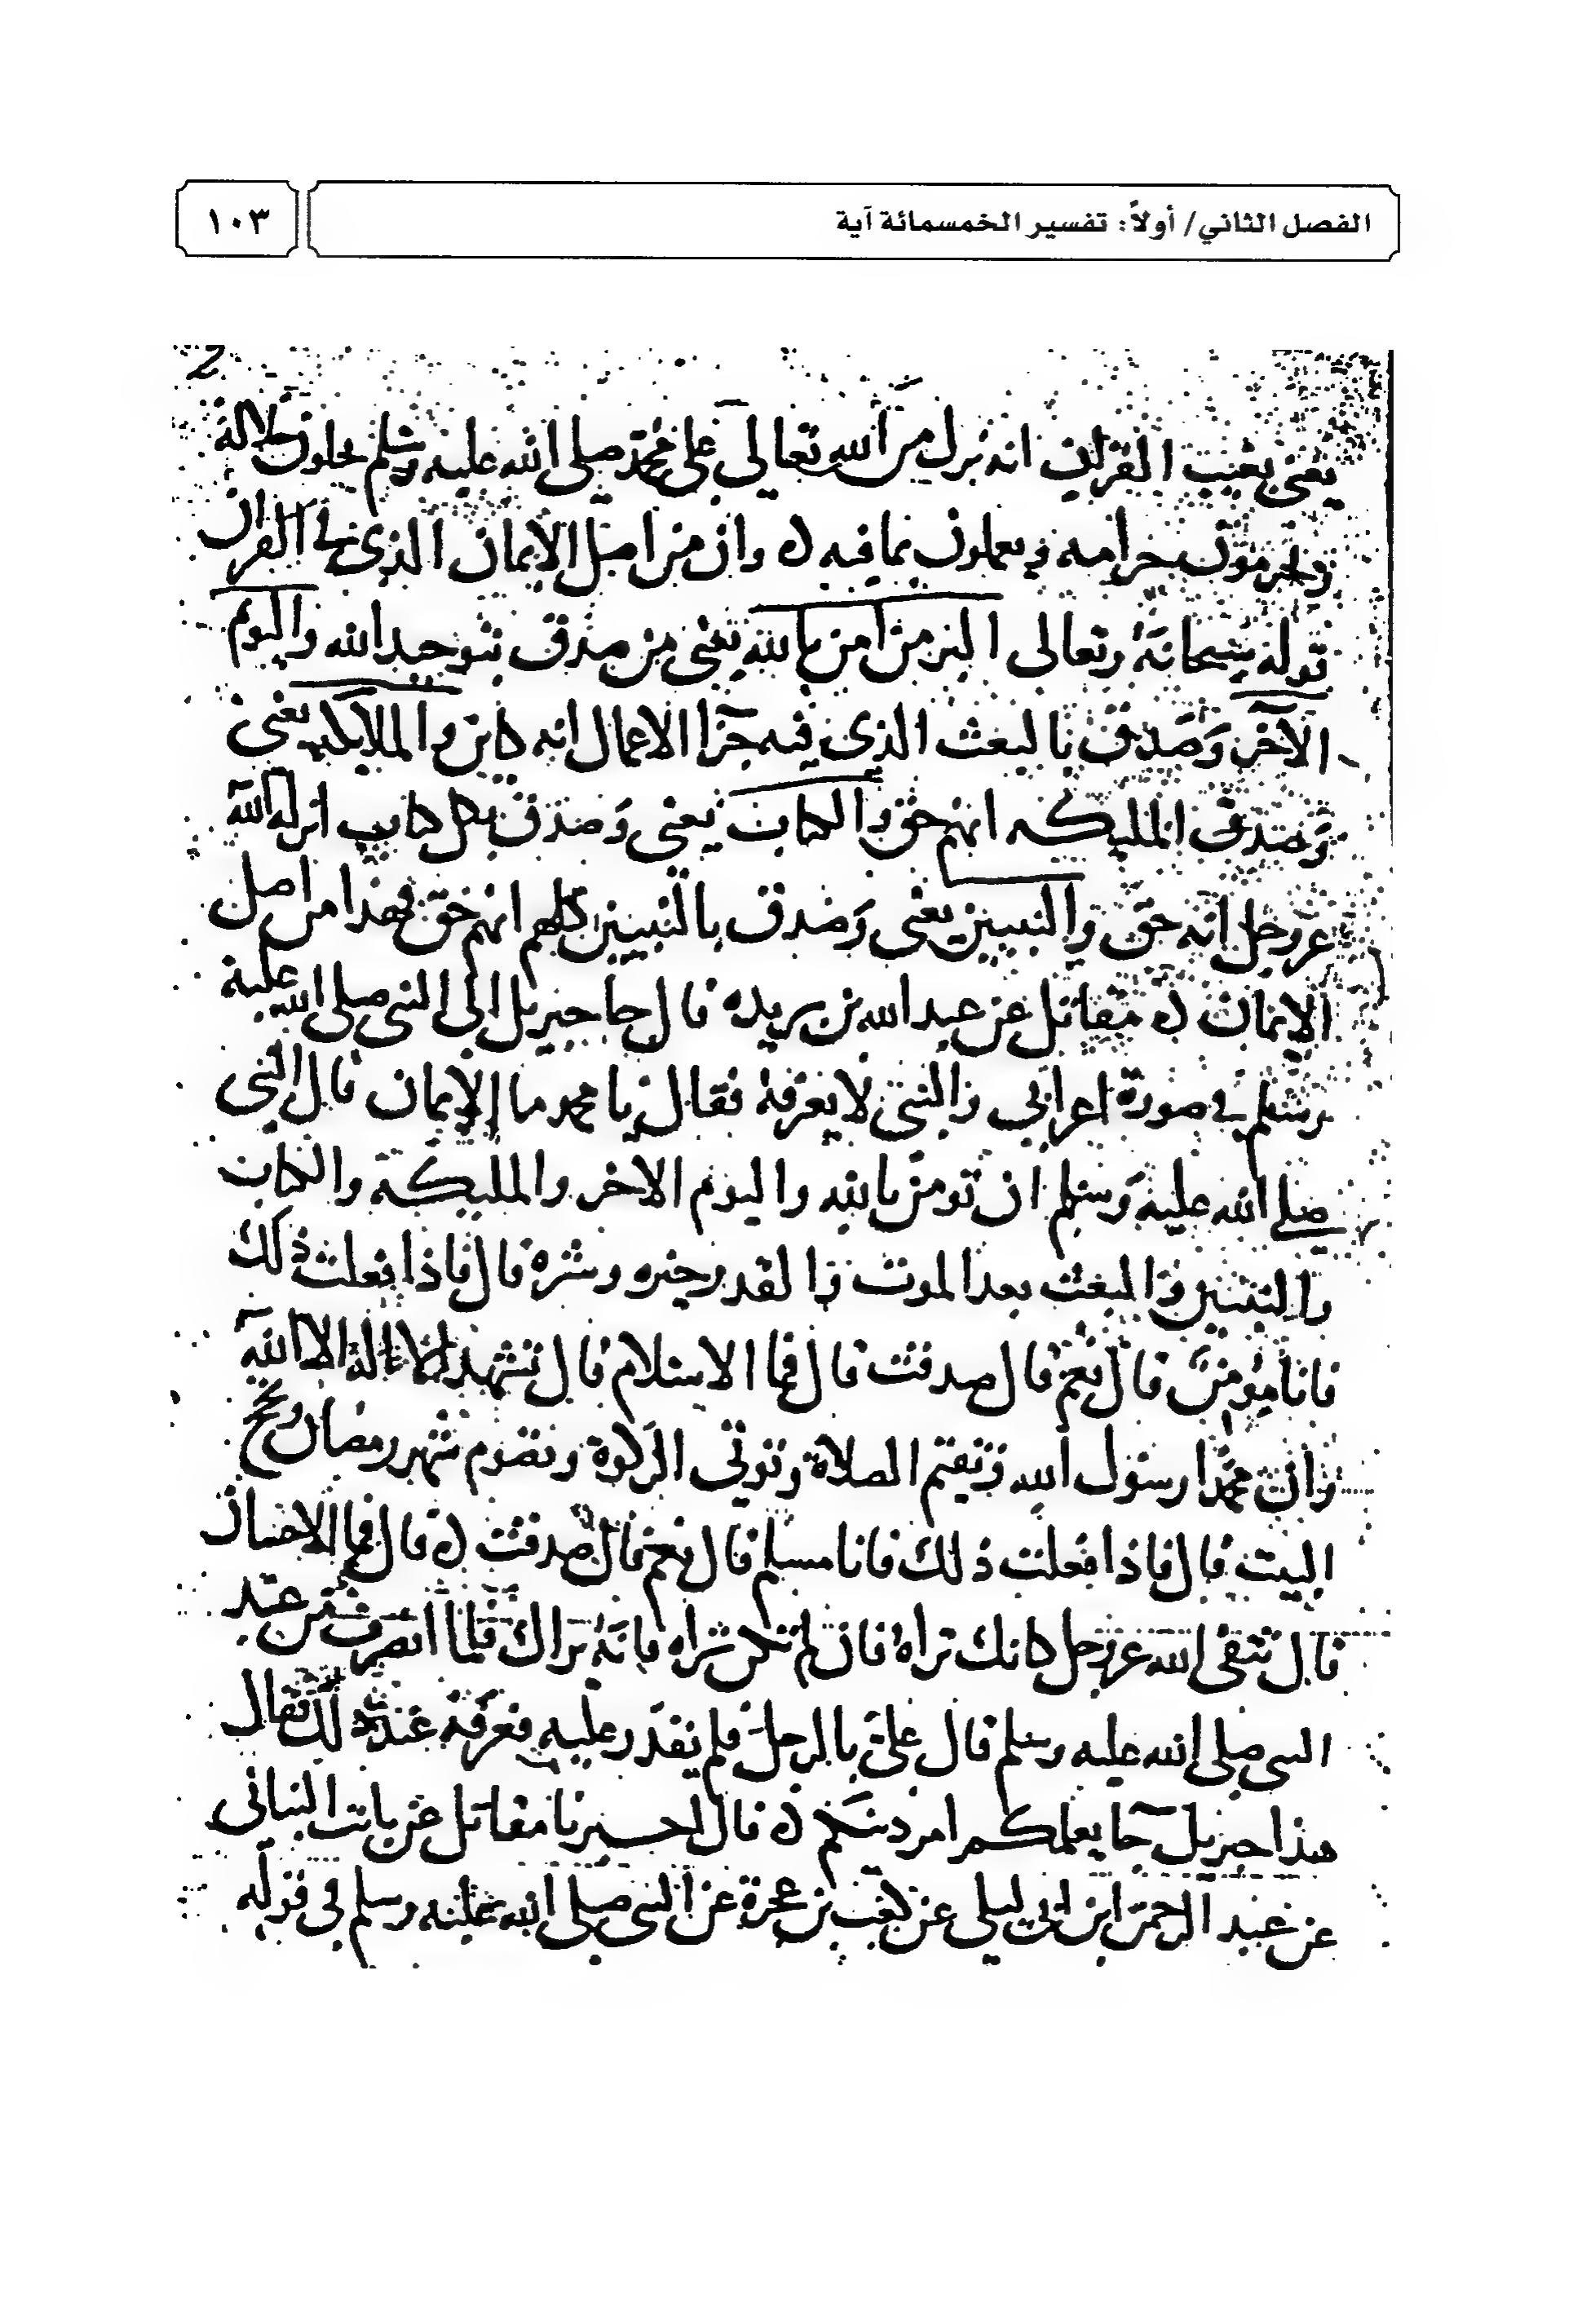 الفصل الثاني/ أولاً: تفسير الخمسمائة آية
١٠٣
يعني بعيب القران انه نزل من الله تعالى على محمد صلى الله عليه وسلم يحلون حلاله
ويحرمون حرامه ويعملون بما فيه ن وان من اصل الايمان الذي في القران
قوله سبحانه وتعالى البر من امن بالله يعني من صدق بتوحيد الله واليوم
الاخر وصدق بالبعث الذي فيه جزا الاعمال انه كاين والملايكه يعني
وصدق المليكه انهم حق والكتاب يعني وصدق بكل كتاب انزله الله
عز وجل انه حق والنبيين يعني وصدق بالنبيين كلهم انهم حق فهذا من اصل
الايمان ن مقاتل عن عبد الله بن بريده قال جا جبريل الى النبي صلى الله عليه
وسلم في صورة اعرابي والنبي لا يعرفه فقال يا محمد ما الايمان قال النبي
صلى الله عليه وسلم ان تومن بالله واليوم الاخر والمليكة والكتاب
والنبيين والبعث بعد الموت والقدر خيره وشره قال فاذا فعلت ذلك
فانا مومن قال نعم قال صدقت قال فما الاسلام قال تشهد ان لا اله الا الله
وان محمدا رسول الله وتقيم الصلاة وتوتي الزكوة وتصوم شهر رمضان وتحج
البيت قال فاذا فعلت ذلك فانا مسلم قال نعم قال صدقت ن قال فما الاحسان
قال تتقى الله عز وجل كانك تراه فان لم تكن تراه فانه يراك فلما انصرف من عند
النبي صلى الله عليه وسلم قال علي بالرجل فلم يقدر عليه فعرفه عند ذلك فقال
هذا جبريل جا يعلمكم امر دينكم ن قال اخبرنا مقاتل عن ثابت البناني
عن عبد الرحمن ابن ابي ليلى عن كعب بن عجرة عن النبي صلى الله عليه وسلم في قوله